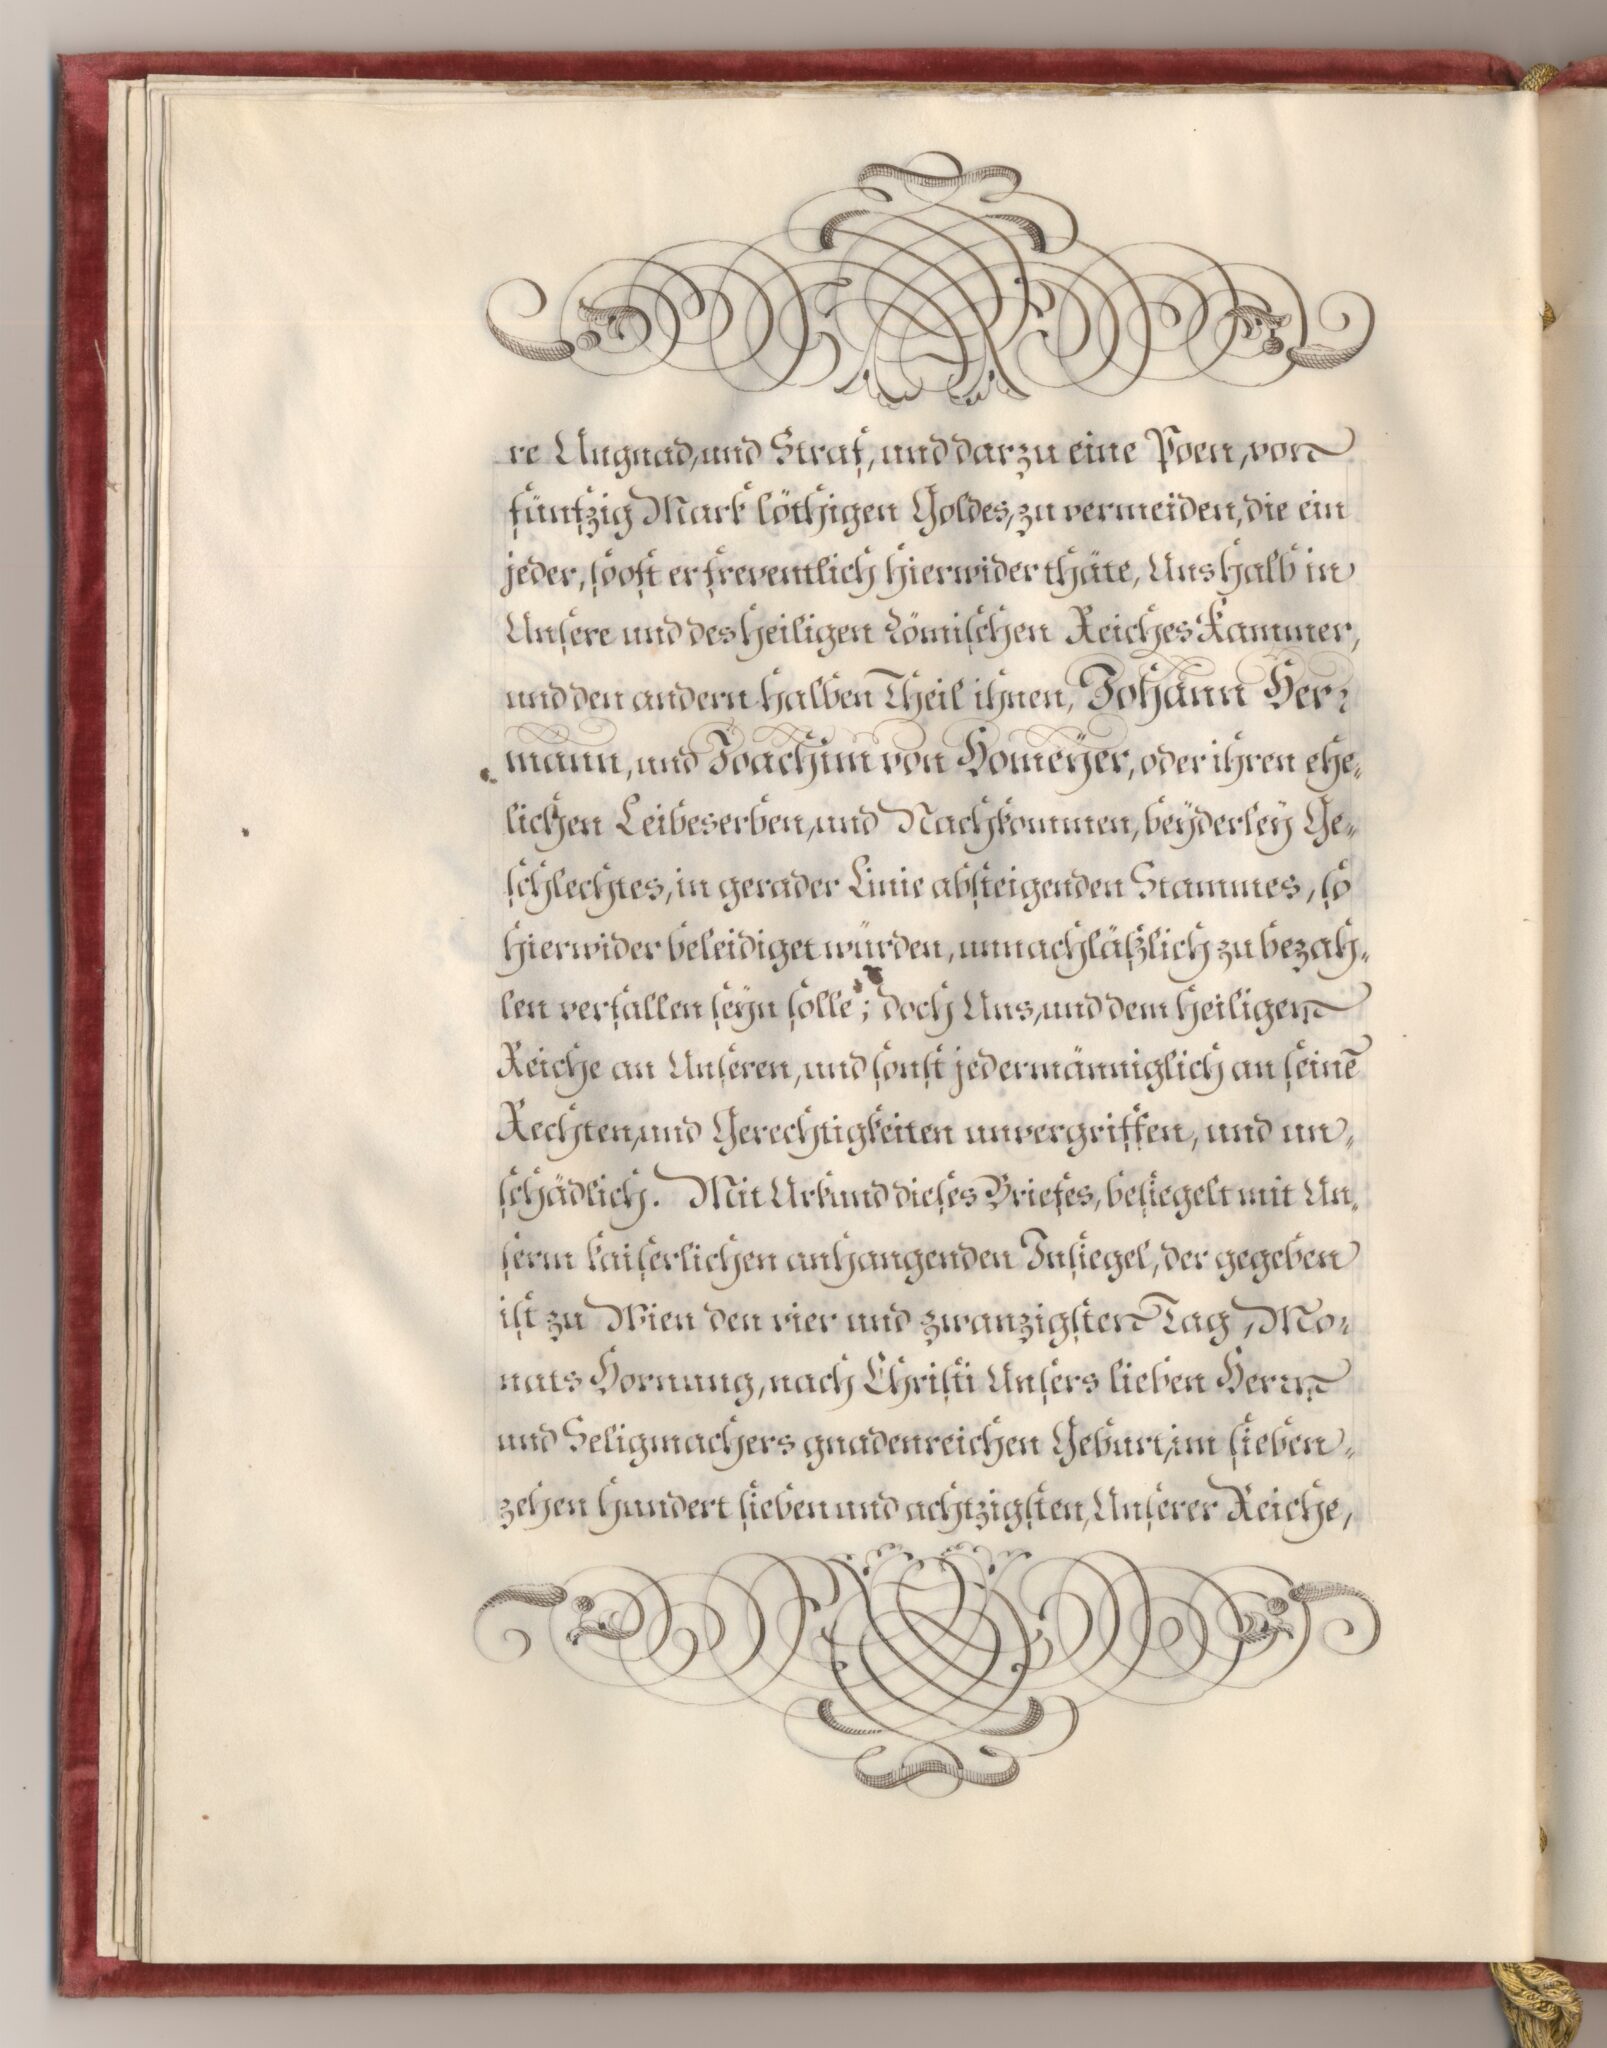 re Ungnad, und Straf, und darzu eine Poen, von
fünfzig Mark löthigen Goldes, zu vermeiden, die ein
jeder, so oft er freventlich hierwider thäte, Uns halb in
Unsere und des heiligen Römischen Reiches Kammer,
und den andern halben Theil ihnen, Johann Her-
mann, und Joachim von Homeÿer, oder ihren ehe-
lichen Leibeserben, und Nachkommen, beÿderleÿ Ge-
schlechtes, in gerader Linie absteigenden Stammes, so
hierwider beleidiget würden, unnachläßlich zu bezah-
len verfallen seÿn solle; doch Uns, und dem heiligen
Reiche an Unseren, und sonst jedermänniglich an seinē
Rechten, und Gerechtigkeiten unvergriffen, und un-
schädlich. Mit Urkund dieses Briefes, besiegelt mit Un-
serm kaiserlichen anhangenden Insiegel, der gegeben
ist zu Wien den vier und zwanzigsten Tag, Mo-
nats Hornung, nach Christi Unsers lieben Herrn
und Seligmachers gnadenreichen Geburt, im sieben-
zehen hundert sieben und achtzigsten, Unserer Reiche,